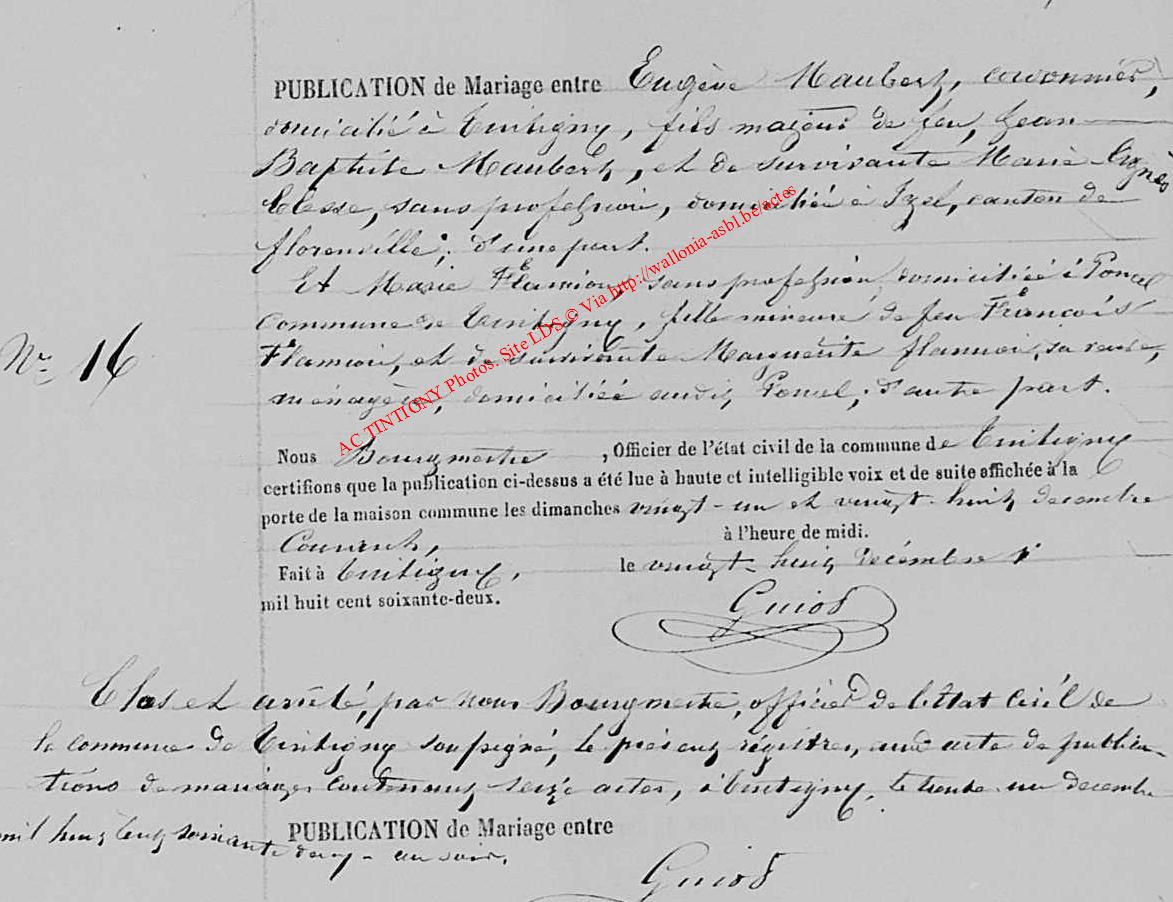 PUBLICATION de Mariage entre Eugène Maubert, cordonnier,
domicilié à Tintigny, fils majeur de feu, Jean
Baptiste Maubert, et de survivante Marie Agnès
Clesse, sans profession, domiciliée à Izel, canton de
florenville; d'une part.
Et Marie Flamion, sans profession, domiciliée à Poncel
Commune de Tintigny, fille mineure de feu François
Nº 16
Flamion, et de survivante Marguerite flamion, sa veuve,
ménagère, domiciliée audit Poncel; d'autre part.
AC TINTIGNY Photos. Site LDS © Via http://wallonia-asbl.be/actes
Nous Bourgmestre , Officier de l'état civil de la commune de Tintigny
certifions que la publication ci-dessus a été lue à haute et intelligible voix et de suite affichée à la
porte de la maison commune les dimanches vingt-un et vingt-huit decembre
à l'heure de midi.
Courant,
Fait à Tintigny, le vingt-huit décembre
mil huit cent soixante-deux.
Guiot
Clos et arrêté, par nous Bourgmestre, officier de l'Etat Civil de
la commune de Tintigny soussigné, le présent régistre, aux acte de publica-
tions de mariages contenant seize actes, à Tintigny, le trente-un decembre
mil huit cent soixante deux - au soir.
PUBLICATION de Mariage entre
Guiot